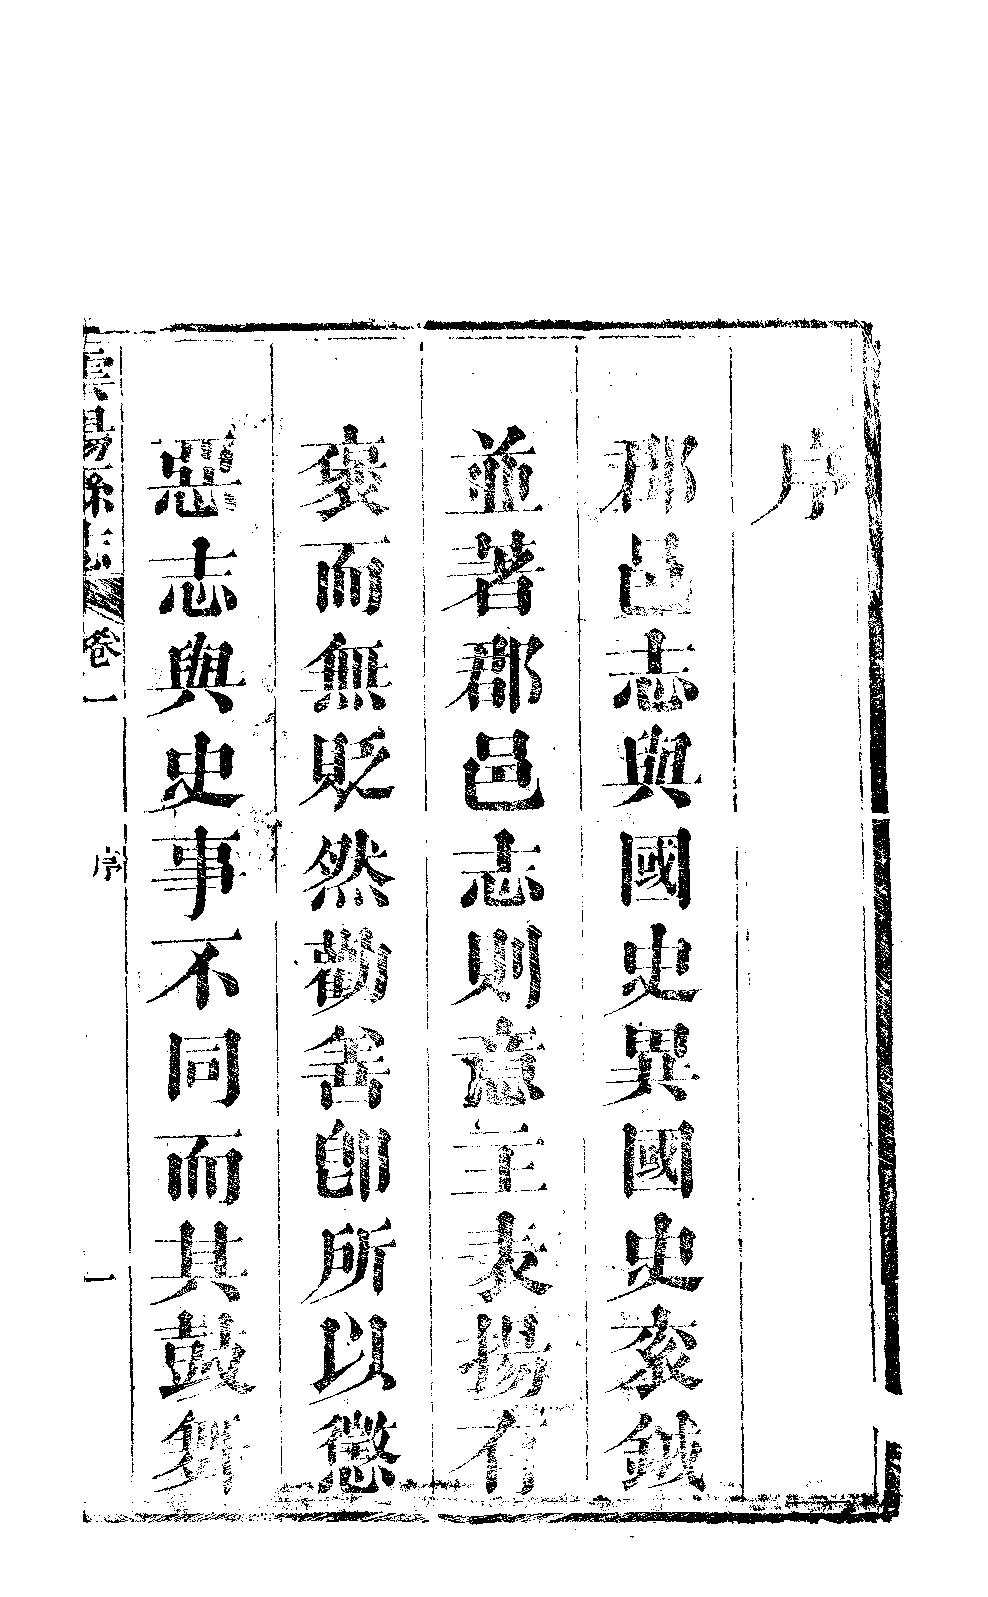 序
郡邑志與國史異國史袞鉞
並著郡邑志則意主表揚有
褒而無貶然勸善卽所以懲
惡志與史事不同而其鼓舞
雲陽縣志 卷一 序 一